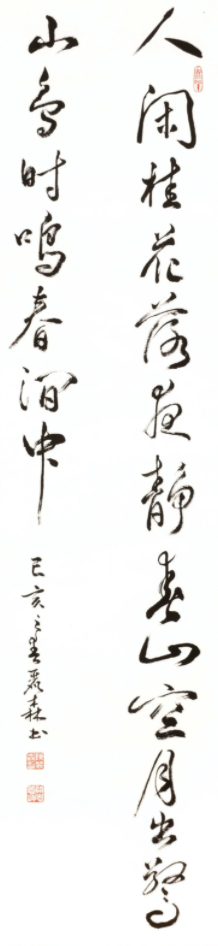 人闲桂花落夜静春山空月出惊
山鸟时鸣春涧中
己亥之春严森书